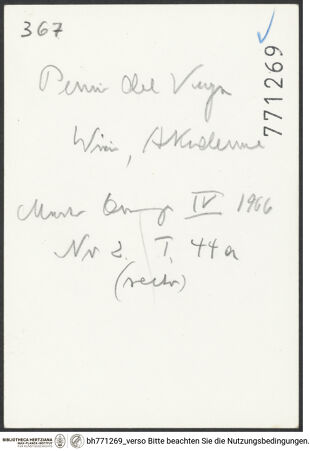 367
771269
Perin del Vaga
Wien, Akademie
Master Drawings IV 1966
Nr 2. T. 44a
(recto)
BIBLIOTHECA HERTZIANA
MAX-PLANCK-INSTITUT
FÜR KUNSTGESCHICHTE
bh771269_verso Bitte beachten Sie die Nutzungsbedingungen.